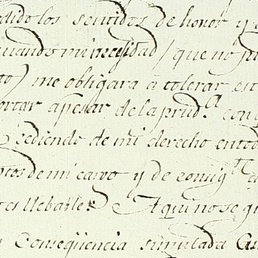 dido los sentidos de honor y
quando mi necesidad / que no p
to) me obligara a tolerar est
portar apesar de la prud.ª con q
cediendo de mi derecho en todo
ptos de mi cargo y de consig.te
tes Uebatle A qui no se q
Conseqüencia simulada